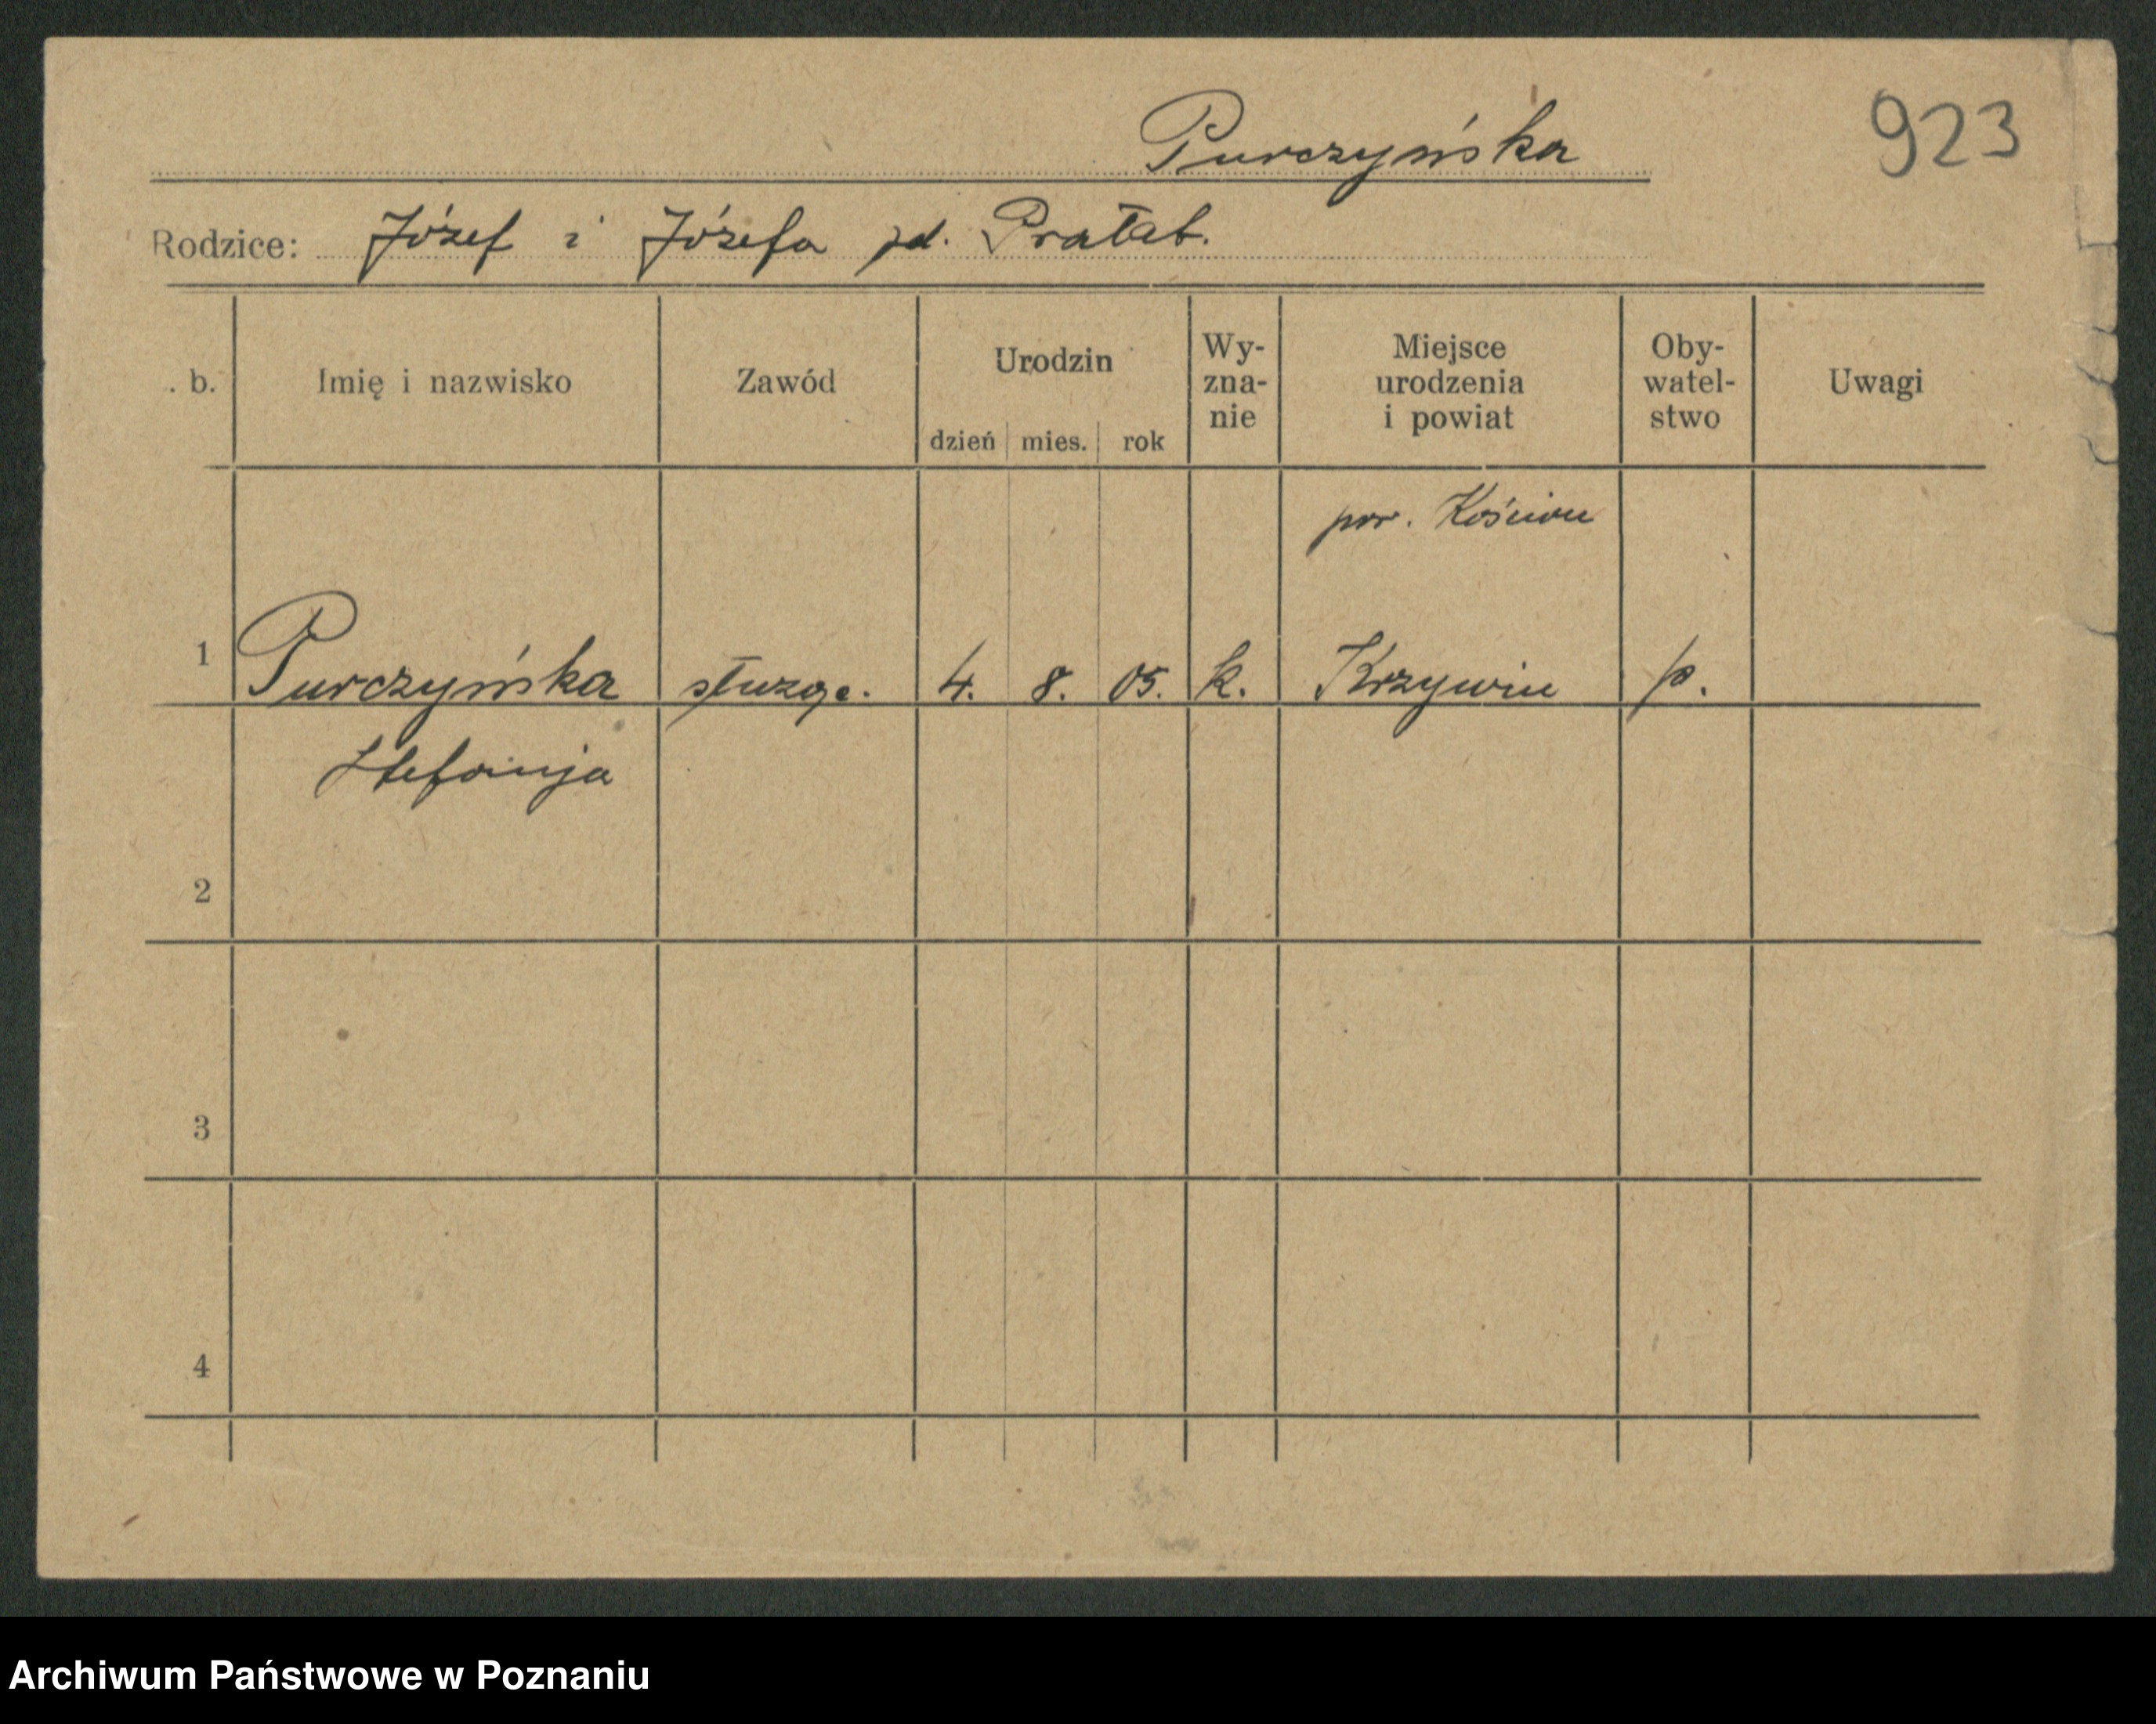 Purczyńska
923
Rodzice: Józef i Józefa zd. Prałat.
. b. Imię i nazwisko Zawód Urodzin Wy- Miejsce Oby- Uwagi
zna- urodzenia watel-
nie i powiat stwo
dzień mies. rok
pow. Kościan
1 Purczyńska służąc. 4. 8. 05. k. Krzywin p.
Stefanja
2
3
4
Archiwum Państwowe w Poznaniu